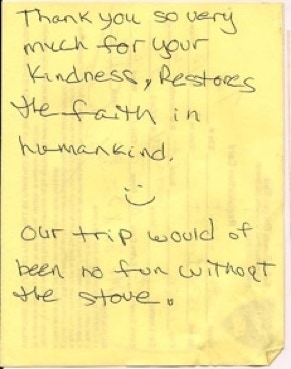 Thank you so very
much for your
Kindness, Restores
the faith in
humankind.
Our trip would of
been no fun without
the stove.